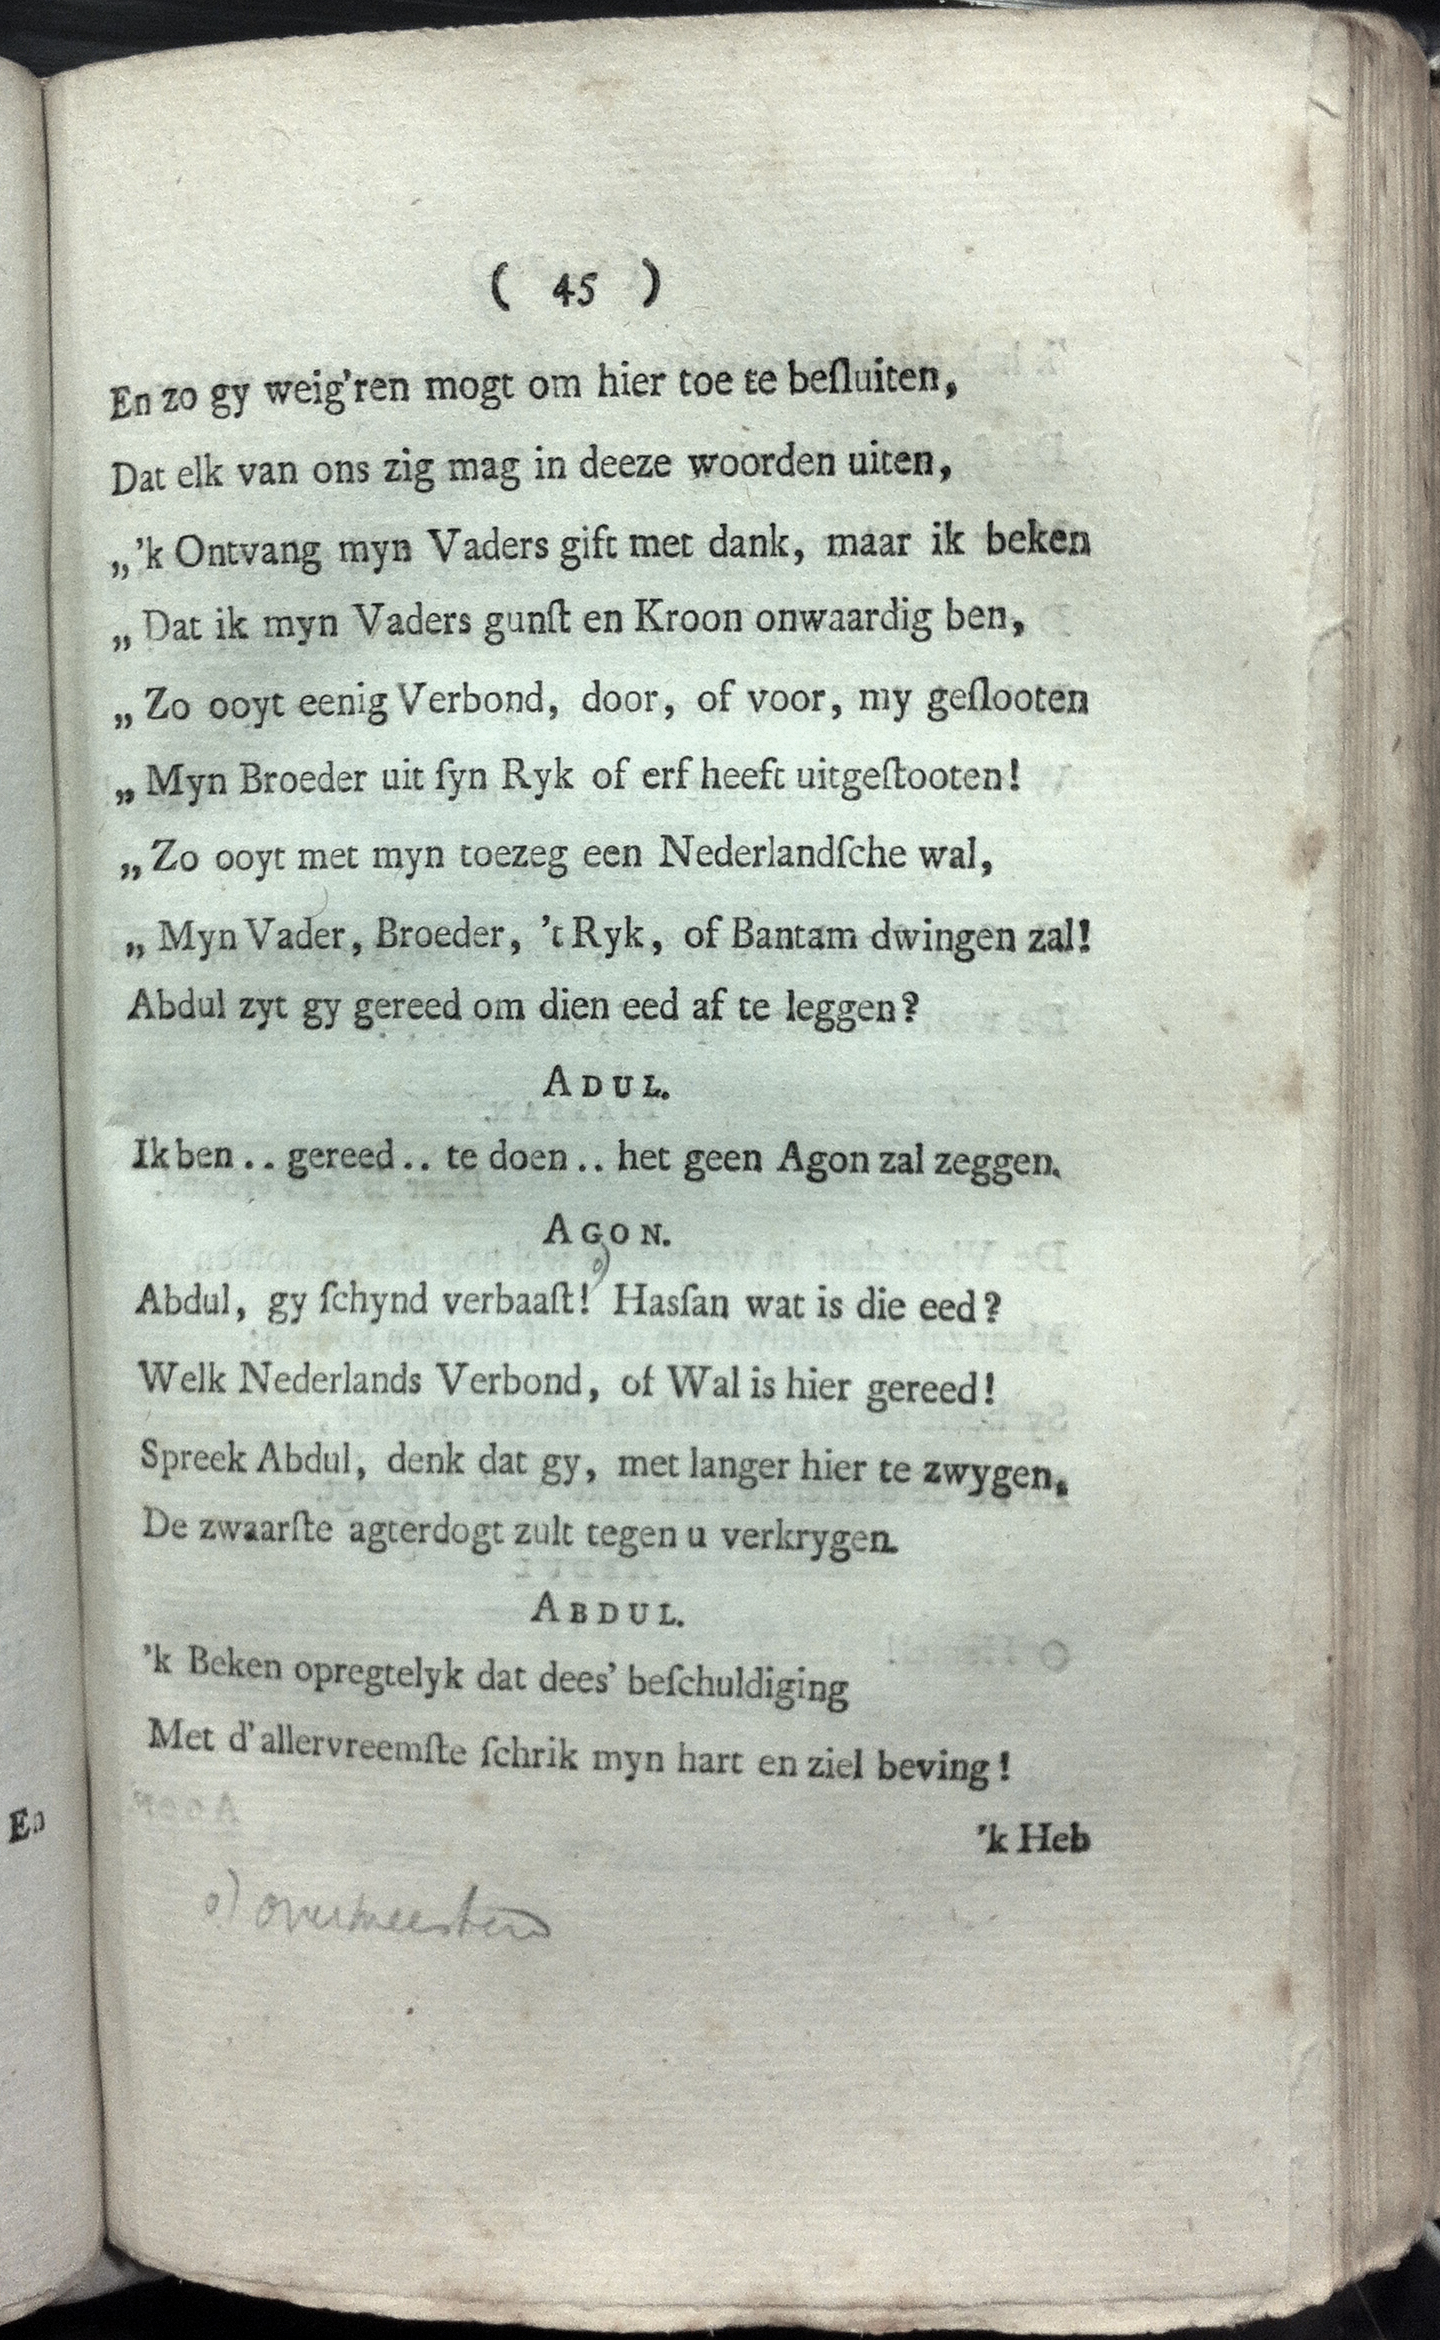 ( 45 )
En zo gy weig'ren mogt om hier toe te beſluiten,
Dat elk van ons zig mag in deeze woorden uiten,
„'k Ontvang myn Vaders gift met dank, maar ik beken
„ Dat ik myn Vaders gunſt en Kroon onwaardig ben,
„ Zo ooyt eenig Verbond, door, of voor, my geſlooten
„ Myn Broeder uit ſyn Ryk of erf heeft uitgeſtooten!
„ Zo ooyt met myn toezeg een Nederlandſche wal,
„ Myn Vader, Broeder, 't Ryk, of Bantam dwingen zal!
Abdul zyt gy gereed om dien eed af te leggen?
ADUL.
Ik ben .. gereed .. te doen .. het geen Agon zal zeggen.
AGON.
Abdul, gy ſchynd verbaaſt! Hasſan wat is die eed?
Welk Nederlands Verbond, of Wal is hier gereed!
Spreek Abdul, denk dat gy, met langer hier te zwygen,
De zwaarſte agterdogt zult tegen u verkrygen.
ABDUL.
'k Beken opregtelyk dat dees' beſchuldiging
Met d'allervreemſte ſchrik myn hart en ziel beving!
'k Heb
En